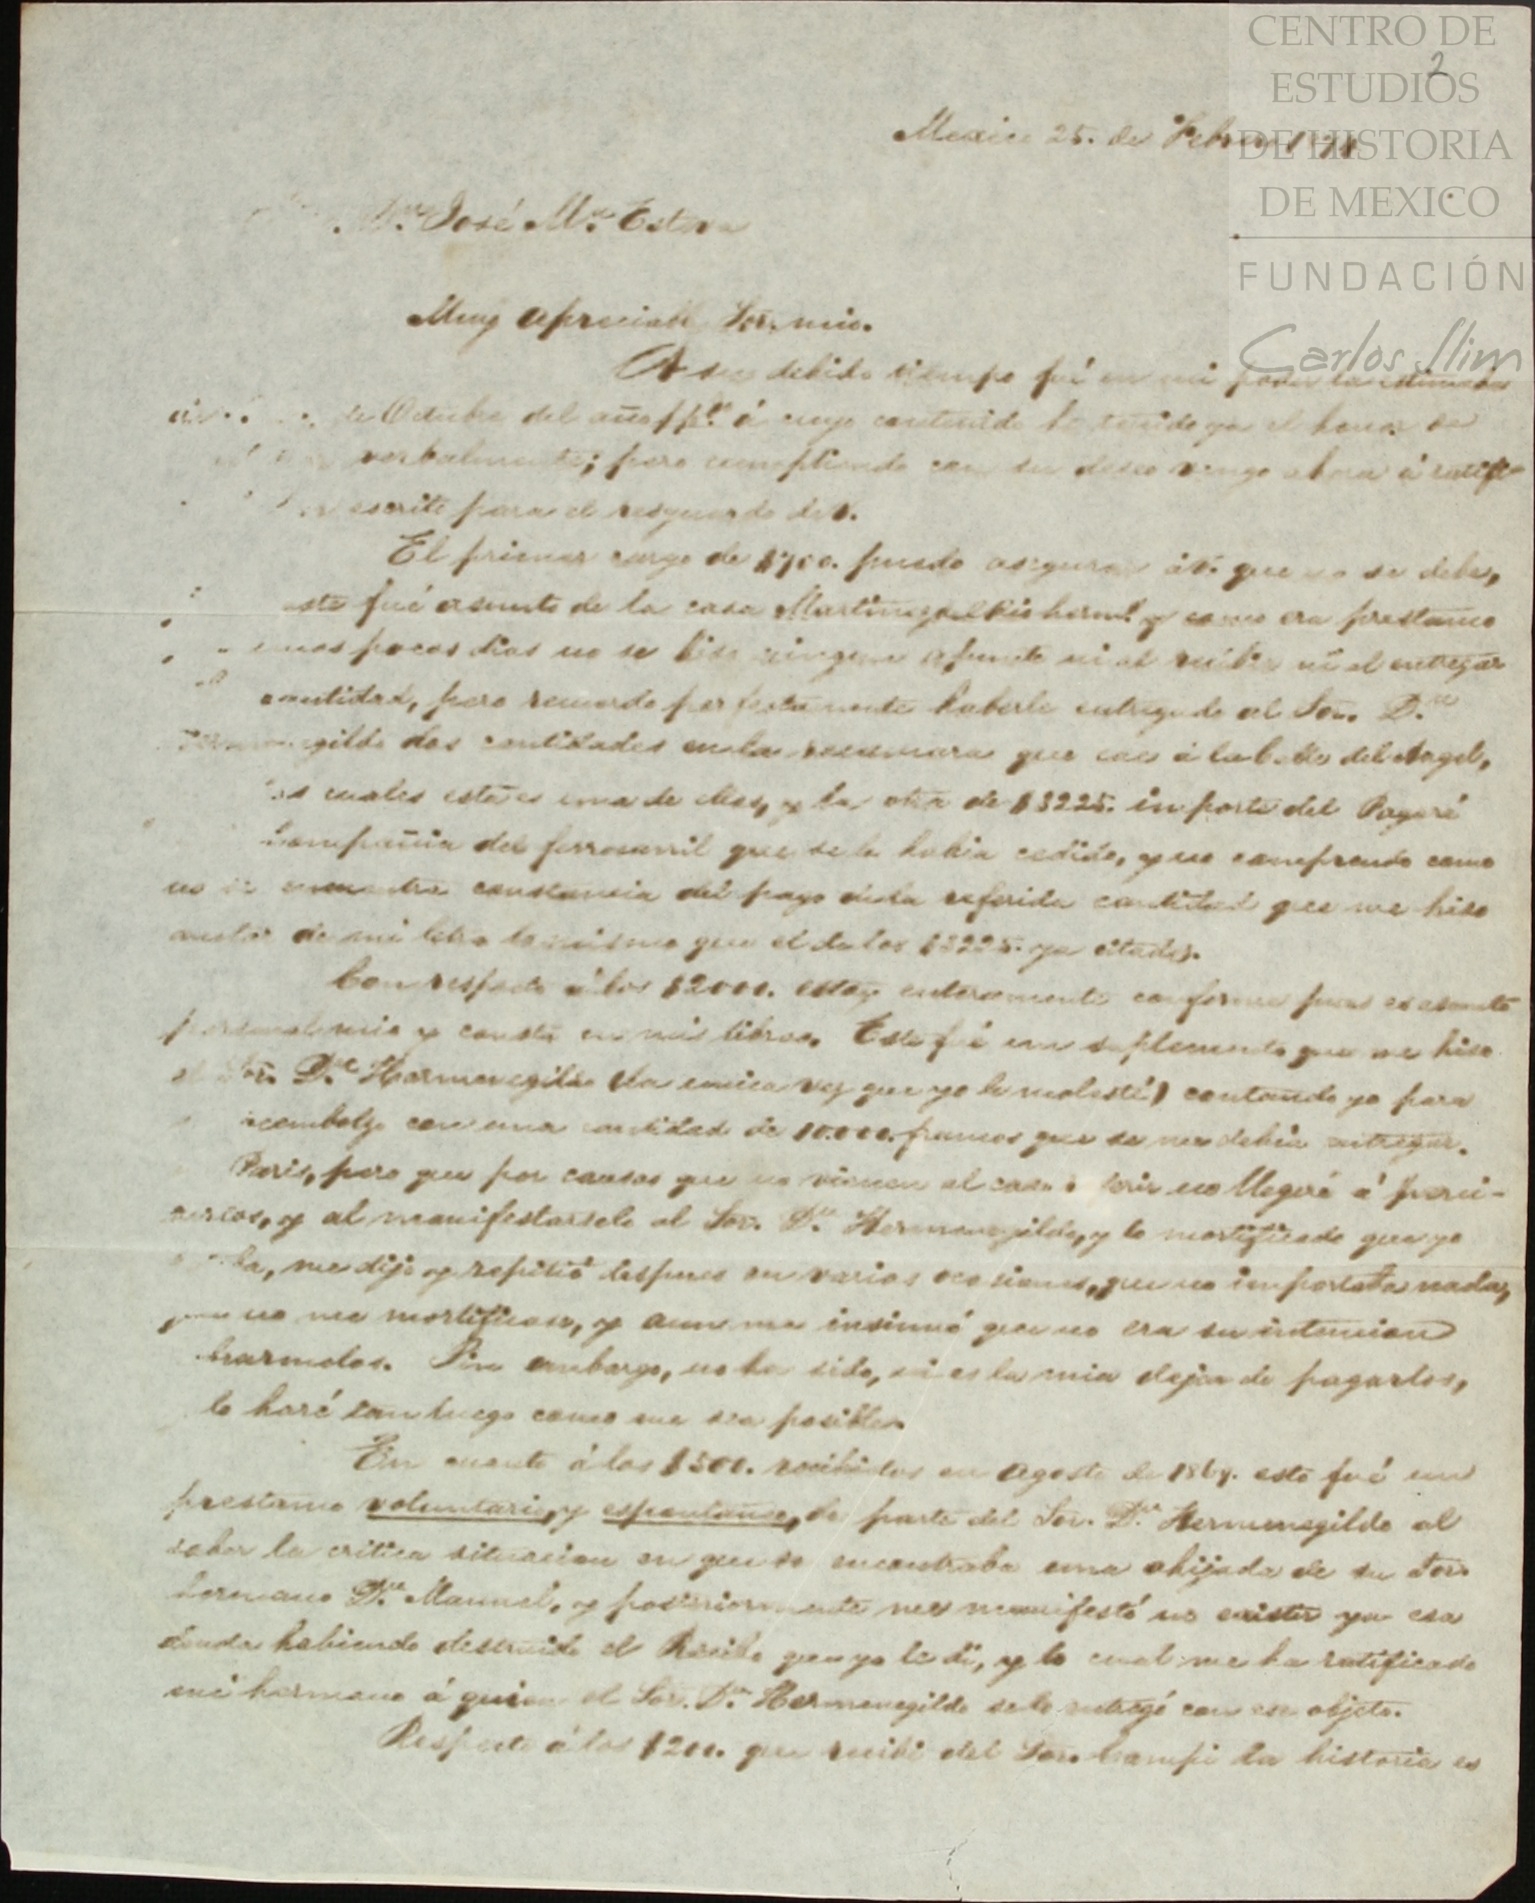 CENTRO DE
ESTUDIOS
DE HISTORIA
DE MEXICO
FUNDACIÓN
Carlos Slim
2
Mexico 25. de Febrero
Dn. José Ma. Esteva
Muy apreciable Sor. mio.
A su debido tiempo fué en mi poder la estimada
de Octubre del año ppdo. á cuyo contenido he tenido ya el honor de
verbalmente; pero cumpliendo con su deseo vengo ahora á ratifi-
escrito para el resguardo de V.
El primer cargo de $700. puedo asegurar á V. que no se debe,
este fué asunto de la casa Martinez del Rio herms. y como era prestamo
unos pocos dias no se hizo ningun apunte ni al recibir ni al entregar
cantidad, pero recuerdo perfectamente haberle entregado al Sor. Dn.
Hermenegildo dos cantidades en la recamara que cae á la Calle del Angel,
las cuales esta es una de ellas, y la otra de $3225. importe del Pagaré
Compañia del ferrocarril que se le habia cedido, y no comprendo como
no se encuentra constancia del pago de la referida cantidad que me hizo
anotar de mi letra lo mismo que el de los $3225. ya citados.
Con respecto á los $2000. estoy enteramente conforme pues es asunto
personal mio y consta en mis libros. Este fué un suplemento que me hizo
el Sor. Dn. Hermenegildo (la unica vez que yo le molesté) contando yo para
reembolzo con una cantidad de 10.000. francos que se me debia entregar.
Paris, pero que por causas que no vienen al caso no llegué á perci-
y al manifestarselo al Sor. Dn. Hermenegildo, y lo mortificado que yo
me dijo y repitió despues en varias ocasiones, que no importaba nada,
que no me mortificase, y aun me insinuó que no era su intencion
Sin embargo, no ha sido, ni es la mia dejar de pagarlos,
lo haré tan luego como me sea posible.
En cuanto á los $500. recibidos en Agosto de 1867. este fué un
prestamo voluntario, y espontaneo, de parte del Sor. Dn. Hermenegildo al
saber la critica situacion en que se encontraba una ahijada de su Sor.
hermano Dn. Manuel, y posteriormente me manifestó no existir ya esa
deuda habiendo destruido el Recibo que yo le di, y lo cual me ha ratificado
mi hermano á quien el Sor. Dn. Hermenegildo se lo entregó con ese objeto.
Respecto á los $200. que recibi del Sor. Campi la historia es